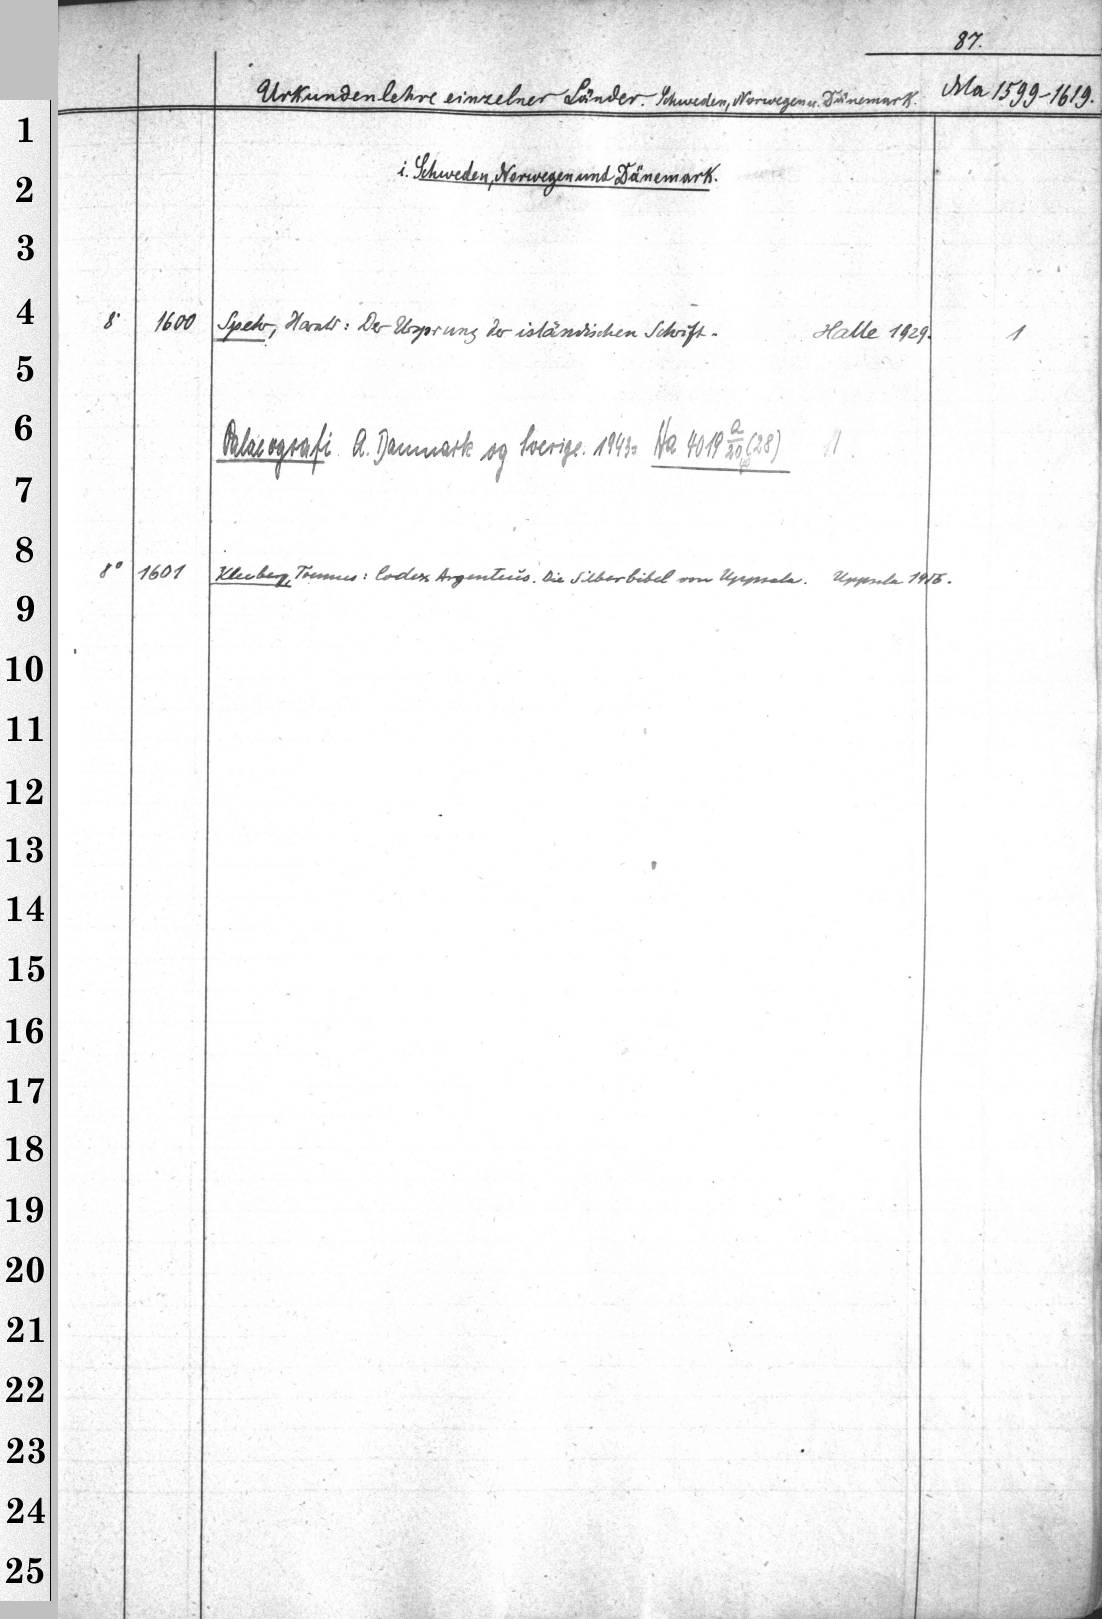 87.
Urkundenlehre einzelner Länder. Schweden, Norwegen u. Dänemark. Ma 1599-1619.
i. Schweden, Norwegen und Dänemark.
8° 1600 Spehr, Harald: Der Ursprung der isländischen Schrift. Halle 1929. 1
Palaeografi A. Danmark og Sverige. 1943= Na 4019 a/20 (28)
8° 1601 Kleberg, Tönnes: Codex Argenteus. Die Silberbibel von Uppsala. Uppsala
1
2
3
4
5
6
7
8
9
10
11
12
13
14
15
16
17
18
19
20
21
22
23
24
25